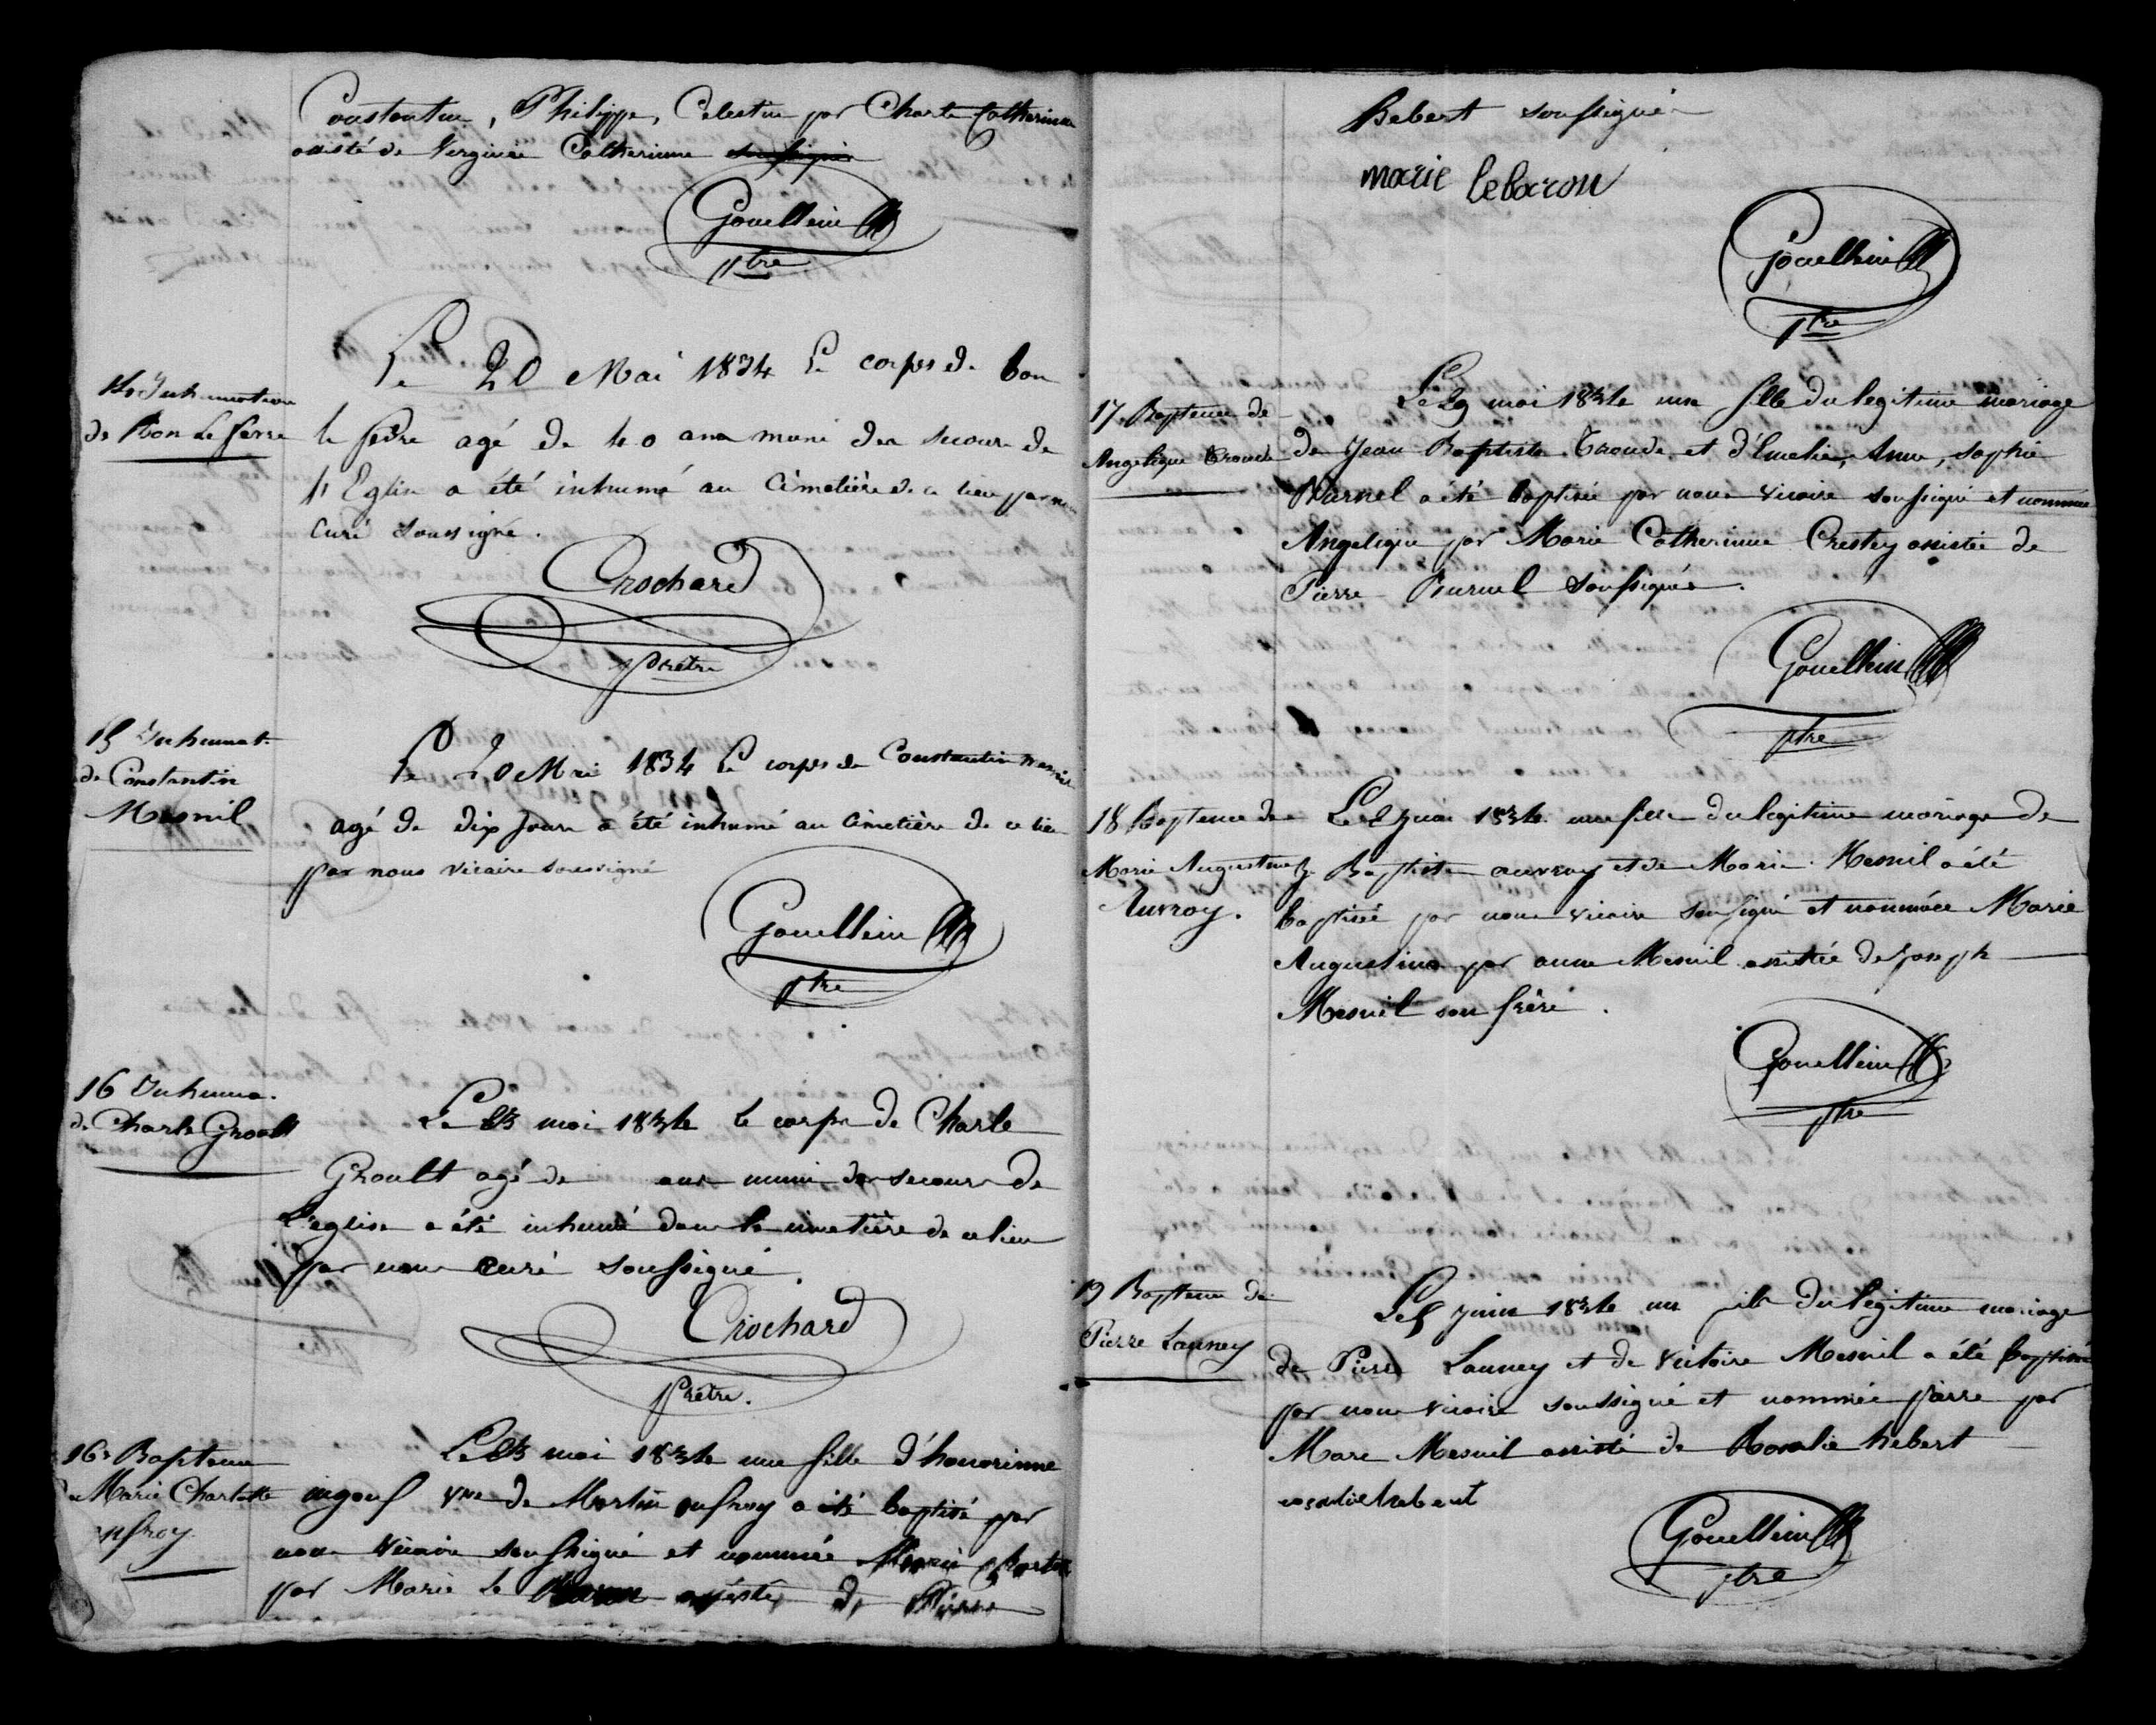 Constantin, Philippe, Celestin par Charle Catherinne
assisté de Verginie Catherinne soussigné
Gouellain
ptre
14 Inhumation
de Bon Le fevre
Le 20 Mai 1834 Le corps de bon
le fevre agé de 40 ans muni des secours de
l'Eglise a été inhumé au Cimetière de ce lieu par nous
curé soussigné.
Crochard
prêtre
15 Inhumat.
de Constantin
Mesnil
Le 20 Mai 1834 Le corps de Constantin Mesnil
agé de dix jours a été inhumé au Cimetière de ce lieu
par nous vicaire soussigné
Gouellain
ptre
16 Inhuma.
de Charle Groult
Le 23 mai 1834 le corps de Charle
Groult agé de ans muni des secours de
L'eglise a été inhumé dans le cimetière de ce lieu
par nous curé soussigné.
Crochard
prêtre.
16 Bapteme
de Marie Charlotte
onfroy
Le 23 mai 1834 une fille d'honorinne
vve de Martin onfroy a été baptisé par
nous vicaire soussigné et nommée Marie Charlotte
par Marie Le assistée de Pierre
Bebert soussignés
marie lebaron
Gouellain
ptre
17 Bapteme de
Angelique Troude
Le 29 mai 1834 une fille du legitime mariage
de Jean Baptiste Troude et d'Emelie, Anne, sophie
Burnel a été baptisée par nous vicaire soussigné et nommée
Angelique par Marie Catherinne Crestey assistée de
Pierre Burnel soussignés.
Gouellain
ptre
18 Bapteme de
Marie Augustine
Auvray.
Le 2 juin 1834 une fille du legitime mariage de
J. Baptiste auvray et de Marie Mesnil a été
baptisée par nous vicaire soussigné et nommée Marie
Augustine par anne Mesnil assistée de joseph
Mesnil son frère.
Gouellain
ptre
19 Bapteme de
Pierre Launey
Le 5 juin 1834 un fils du legitime mariage
de Pierre Launey et de Victoire Mesnil a été baptisé
par nous vicaire soussigné et nommée pierre par
Marc Mesnil assisté de Rosalie hebert
rosalie hebert
Gouellain
ptre